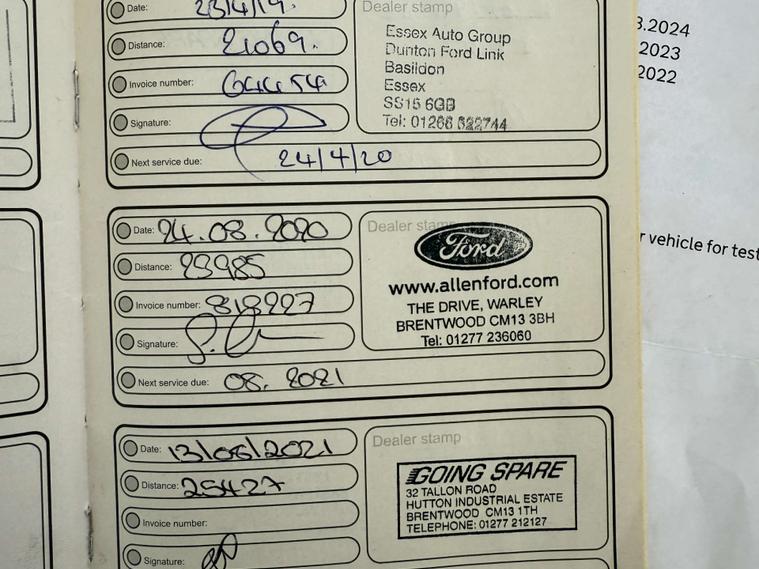 Date: 23/4/19.
Dealer stamp
Distance: 21069.
Essex Auto Group
Dunton Ford Link
Basildon
Essex
SS15 6GB
Tel: 01268 522744
Invoice number:
Signature:
Next service due: 24/4/20
Date: 24.08.2020
Dealer stamp
Ford
www.allenford.com
THE DRIVE, WARLEY
BRENTWOOD CM13 3BH
Tel: 01277 236060
Distance: 23985
Invoice number: 818227
Signature:
Next service due: 08. 2021
Date: 13/08/2021
Dealer stamp
Distance: 25427
GOING SPARE
32 TALLON ROAD
HUTTON INDUSTRIAL ESTATE
BRENTWOOD CM13 1TH
TELEPHONE: 01277 212127
Invoice number:
Signature:
.2024
2023
2022
vehicle for test